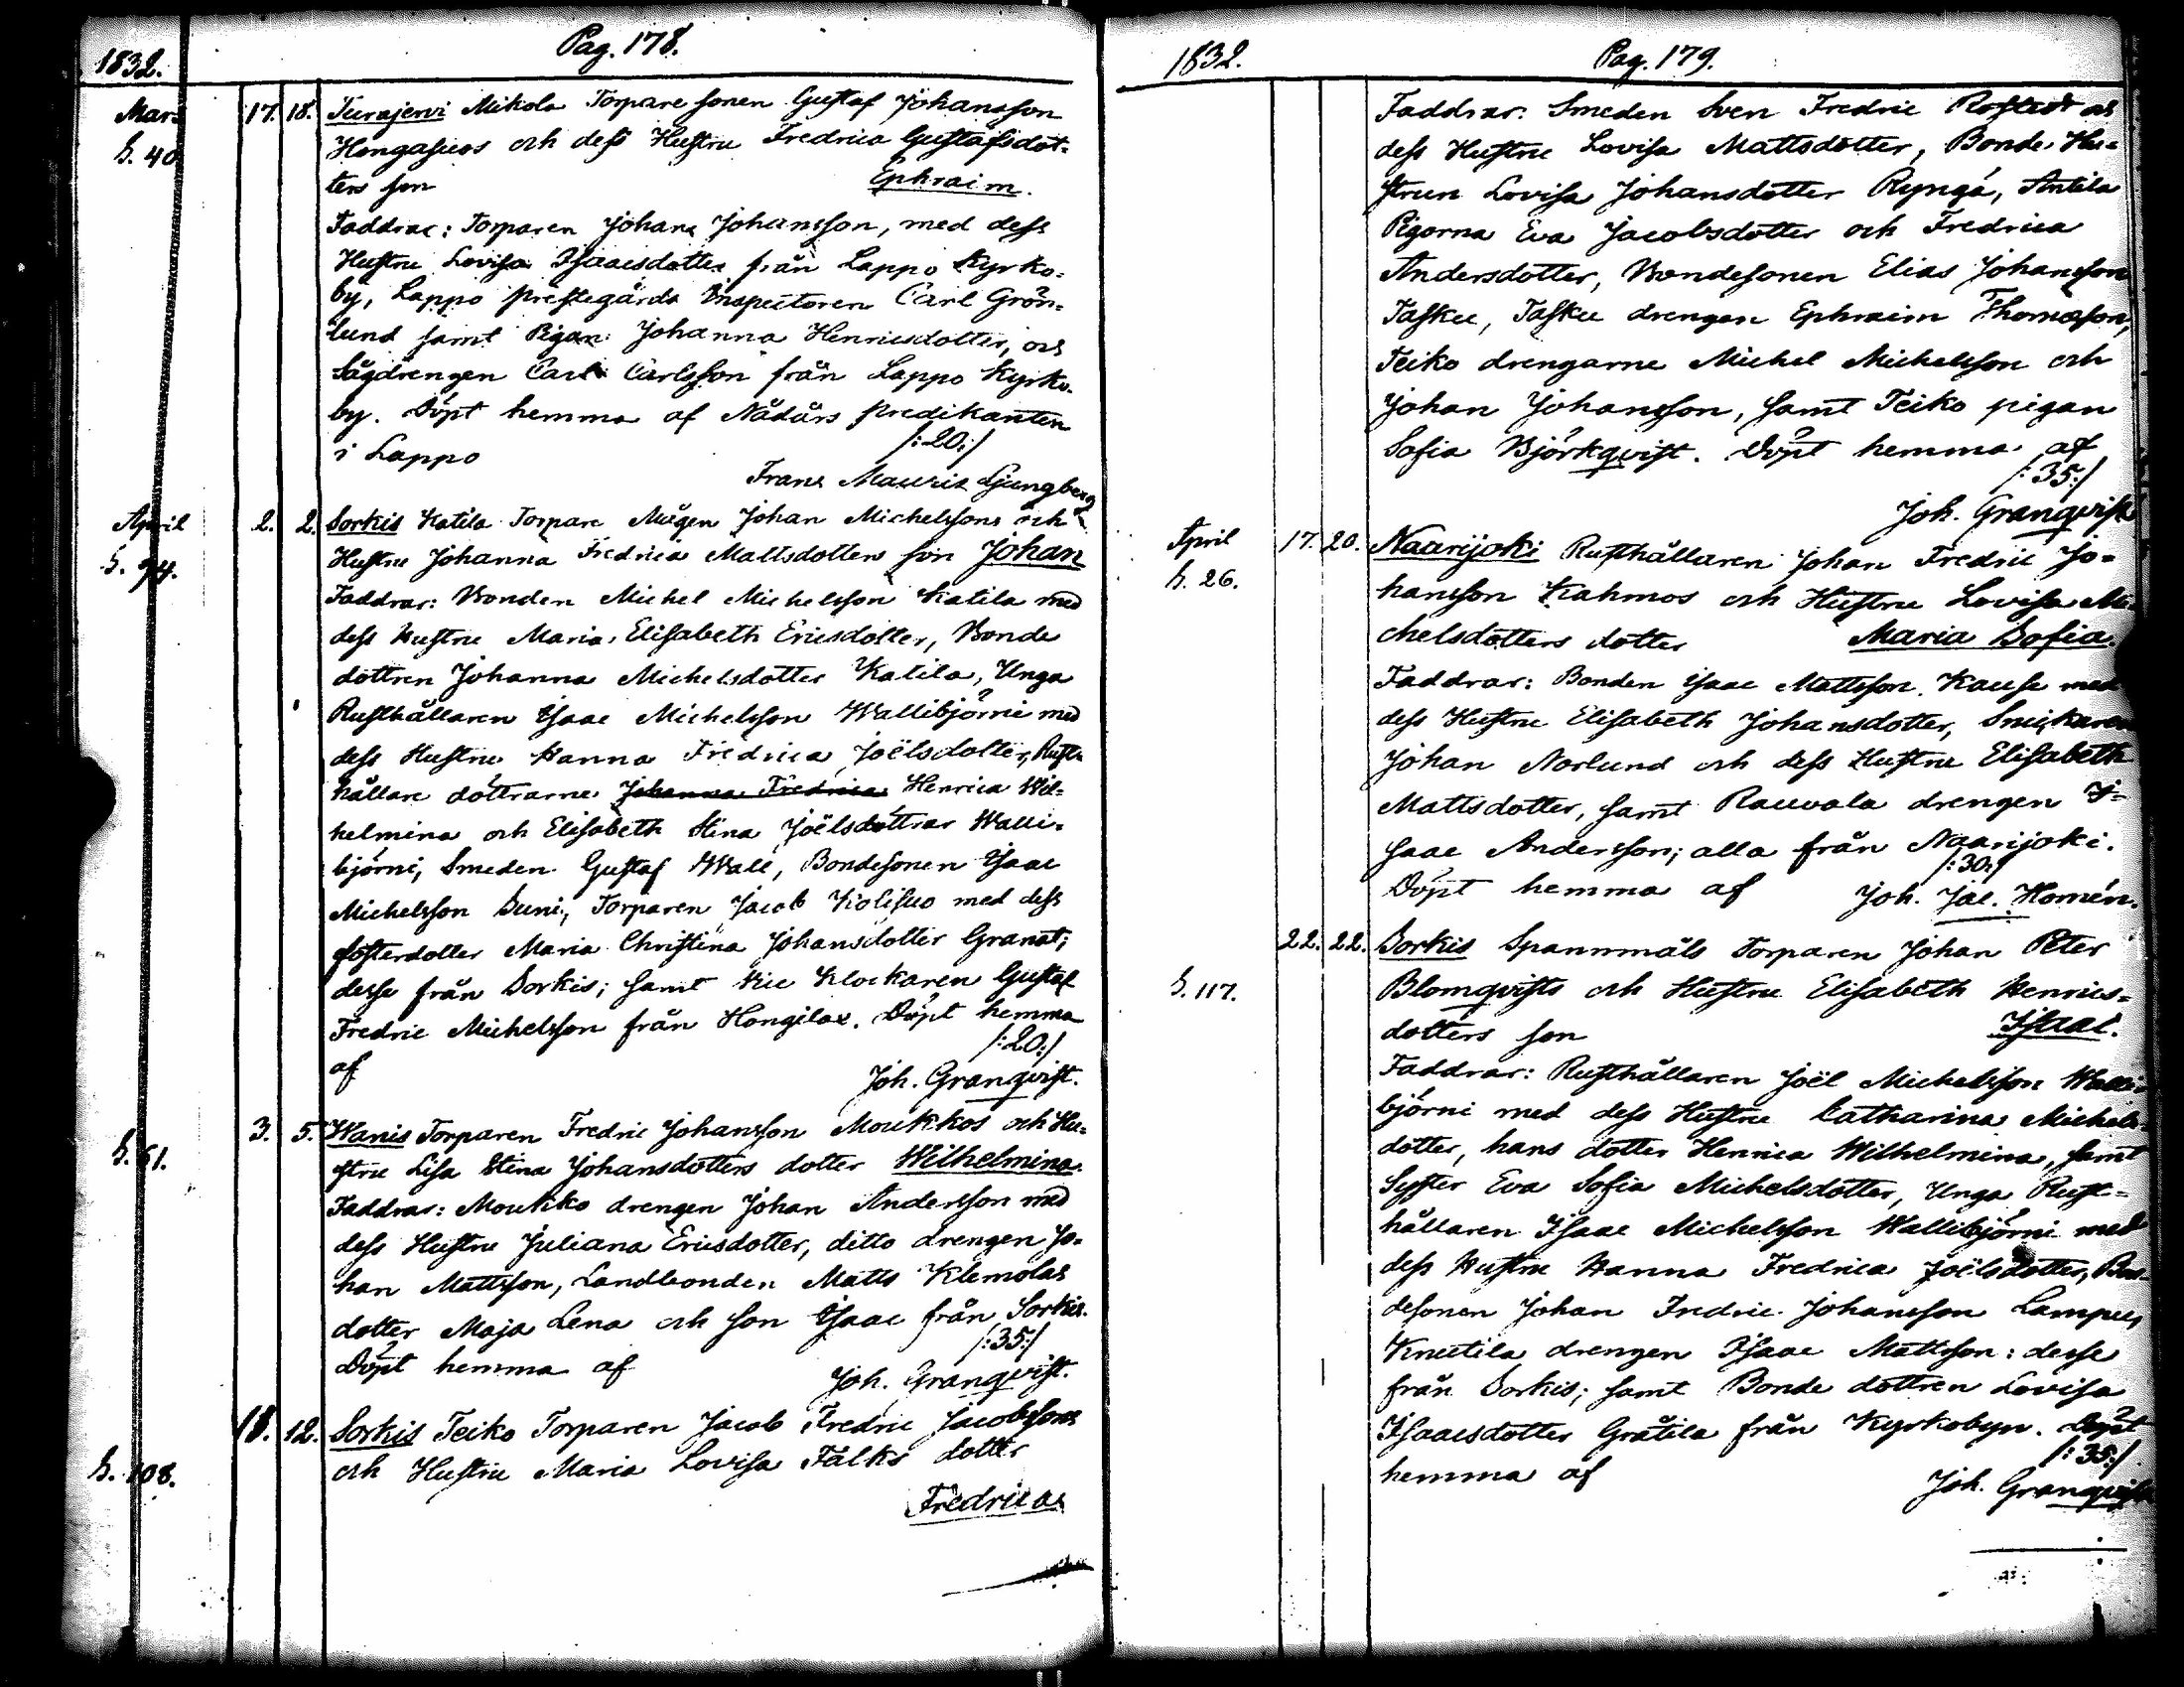 1832.
Pag. 178.
Mars 17. 18. Turajervi Mikola Torpare sonen Gustaf Johansson
S. 40. Hongasuos och dess Hustru Fredrica Gustafsdot-
ters son Ephraim.
Faddrar: Torparen Johan Johansson, med dess
Hustru Lovisa Isaacsdotter från Lappo Kyrko-
by, Lappo prestegårds Inspectoren Carl Grön-
lund samt Pigan Johanna Henricsdotter, och
Sågdrengen Carl Carlsson från Lappo Kyrko-
by. Döpt hemma af Nådårs predikanten
i Lappo /:20:/
Frans Mauriz Ljungberg
April 2. 2. Sorkis Katila Torpare Mågen Johan Michelssons och
S. 94. Hustru Johanna Fredrica Mattsdotters son Johan
Faddrar: Bonden Michel Michelsson Katila med
dess Hustru Maria Elisabeth Ericsdotter, Bonde
dottren Johanna Michelsdotter Katila, Unga
Rusthållaren Isaac Michelsson Wallibjörni med
dess Hustru Hanna Fredrica Joëlsdotter, Rust-
hållare döttrarne Johanna Fredrica Henrica Wil-
helmina och Elisabeth Stina Joëlsdöttrar Walli-
björni, Smeden Gustaf Wall, Bondesonen Isaac
Michelsson Suni, Torparen Jacob Kolisuo med dess
fosterdotter Maria Christina Johansdotter Granat;
desse från Sorkis; samt Vice Klockaren Gustaf
Fredric Michelsson från Hongilax. Döpt hemma
af /:20:/
Joh. Granqvist.
S. 61. 3. 5. Wanis Torparen Fredric Johansson Moukkos och Hu-
stru Lisa Stina Johansdotters dotter Wilhelmina.
Faddrar: Moukko drengen Johan Andersson med
dess Hustru Juliana Ericsdotter, ditto drengen Jo-
han Mattsson, Landbonden Matts Klemolas
dotter Maja Lena och son Isaac från Sorkis.
Döpt hemma af /:35:/
Joh. Granqvist.
18. 12. Sorkis Teiko Torparen Jacob Fredric Jacobssons
S. 108. och Hustru Maria Lovisa Falks dotter
Fredrica
1832.
Pag. 179.
Faddrar: Smeden Sven Fredric Rostedt och
dess Hustru Lovisa Mattsdotter, Bonde Hu-
strun Lovisa Johansdotter Ryngä, Antila
Pigorna Eva Jacobsdotter och Fredrica
Andersdotter, Bondesonen Elias Johansson
Tasku, Tasku drengen Ephraim Thomasson,
Teiko drengarne Michel Michelsson och
Johan Johansson, samt Teiko pigan
Sofia Björkqvist. Döpt hemma af
/:35:/
Joh. Granqvist
April 17. 20. Naarijoki Rusthållaren Johan Fredric Jo-
S. 26. hansson Kahmos och Hustru Lovisa Mi-
chelsdotters dotter Maria Sofia.
Faddrar: Bonden Isaac Mattsson Kause med
dess Hustru Elisabeth Johansdotter, Snickaren
Johan Norlund och dess Hustru Elisabeth
Mattsdotter, samt Rauvala drengen I-
saac Andersson; alla från Naarijoki.
/:30:/
Döpt hemma af Joh. Jac. Homén.
22. 22. Sorkis Spannmåls Torparen Johan Peter
S. 117. Blomqvists och Hustru Elisabeth Henrics-
dotters son Isaac.
Faddrar: Rusthållaren Joël Michelsson Walli-
björni med dess Hustru Catharina Michels-
dotter, hans dotter Henrica Wilhelmina, samt
Syster Eva Sofia Michelsdotter, Unga Rust-
hållaren Isaac Michelsson Wallibjörni med
dess Hustru Hanna Fredrica Joëlsdotter, Bon-
desonen Johan Fredric Johansson Lampu,
Knutila drengen Isaac Mattsson: desse
från Sorkis; samt Bonde dottren Lovisa
Isaacsdotter Gråtila från Kyrkobyn. Döpt
/:35:/
hemma af Joh. Granqvist